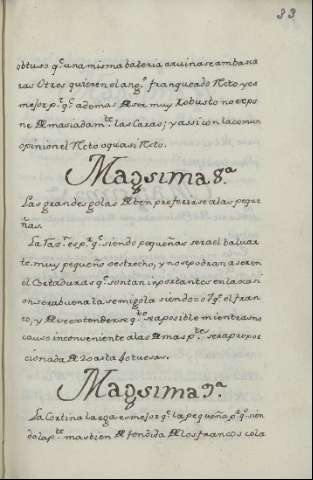 33
obtuso qe una misma bateria arruinase ambas ca
ras Otros quieren el angº franqueado Recto y es
mejor pr qe ademas de ser muy Robusto no expo
ne demasiadamte las Caras; y assi con la comun
opinion el Recto o quasi Recto.
Magsima 8ª
Las grandes golas deben preferirse a las peque
ñas.
La raz es pr qe siendo pequeñas sera el baluar
te muy pequeño o estrecho, y no se podran aser en
el Cortaduras qe son tan inportantes en la ocasi
on sera buena la semigola siendo
co, y se a posible mientras no
cause inconveniente a las demas ptes sera propor
cionada de 20 asta
Magsima 9ª
La Cortina larga es mejor qe la pequeña pr qe sien
do la pte mas bien defendida de los francos cola